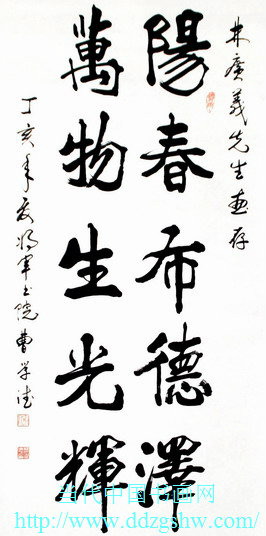 林廣義先生惠存
陽春布德澤
萬物生光輝
丁亥年夏将军书院曹学
当代中国书画网
http://www.ddzgshw.com/